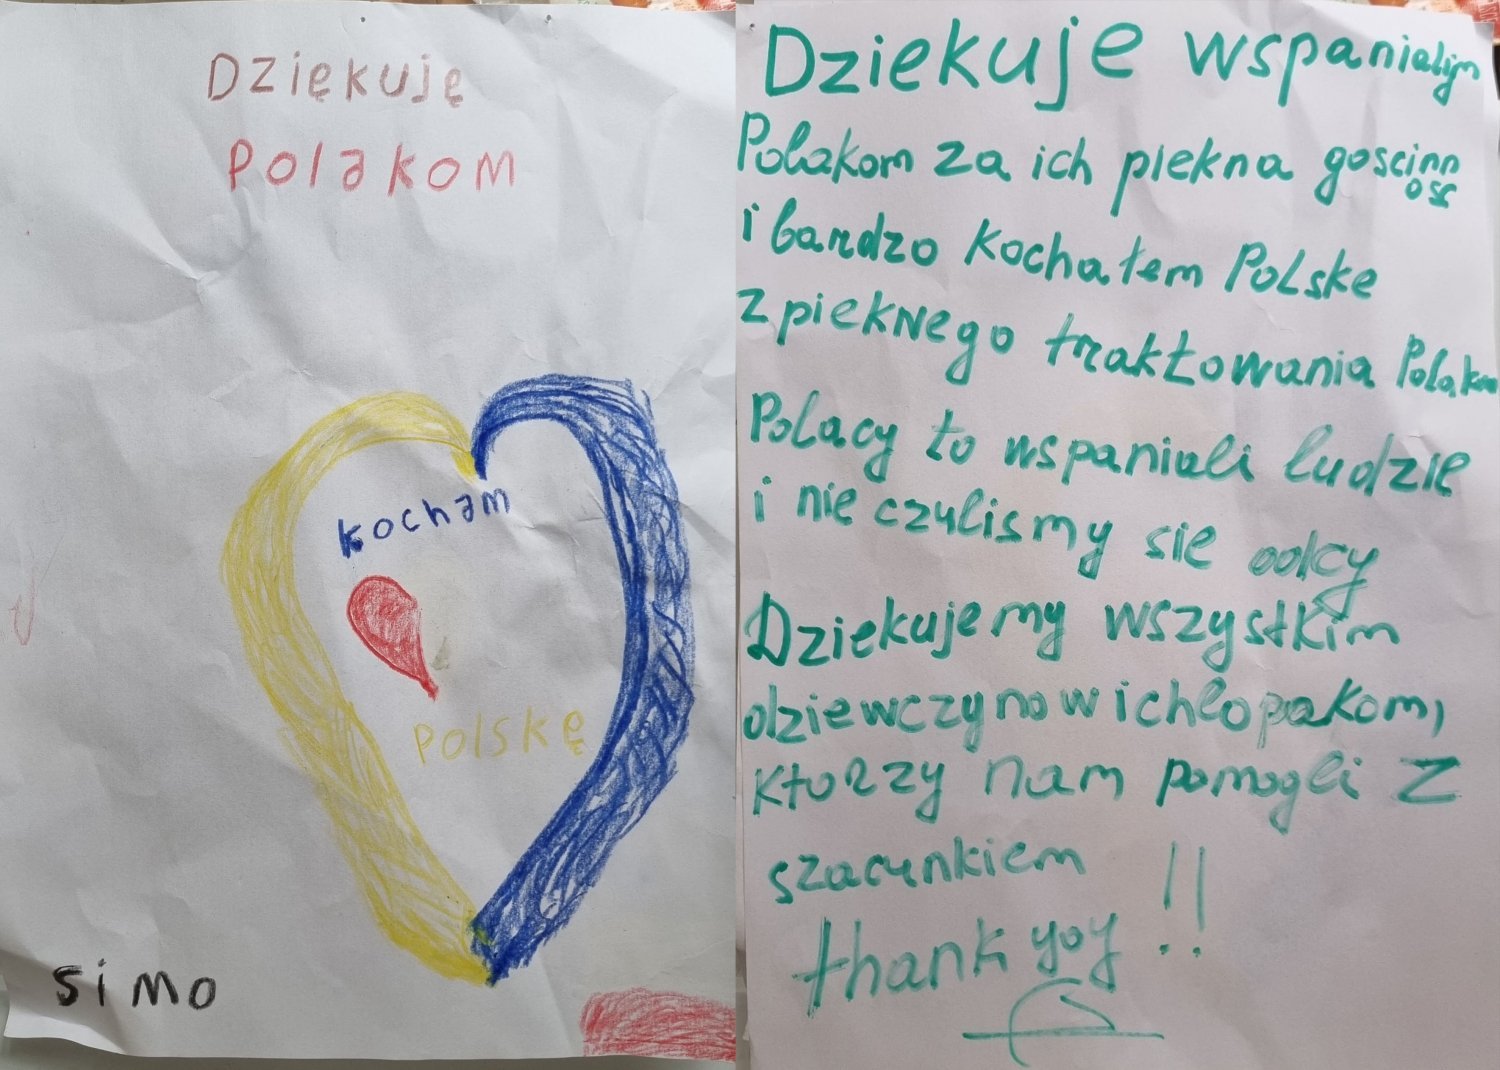 Dziękuję
Polakom
kocham
Polskę
simo
Dziekuje wspanialym
Polakom za ich piekna goscinn
osc
i bardzo kochałem Polske
z pieknego traktowania Polakow
Polacy to wspaniali ludzie
i nie czulismy sie obcy
Dziekujemy wszystkim
dziewczynow i chlopakom,
ktorzy nam pomogli z
szacunkiem !!
thank yoy